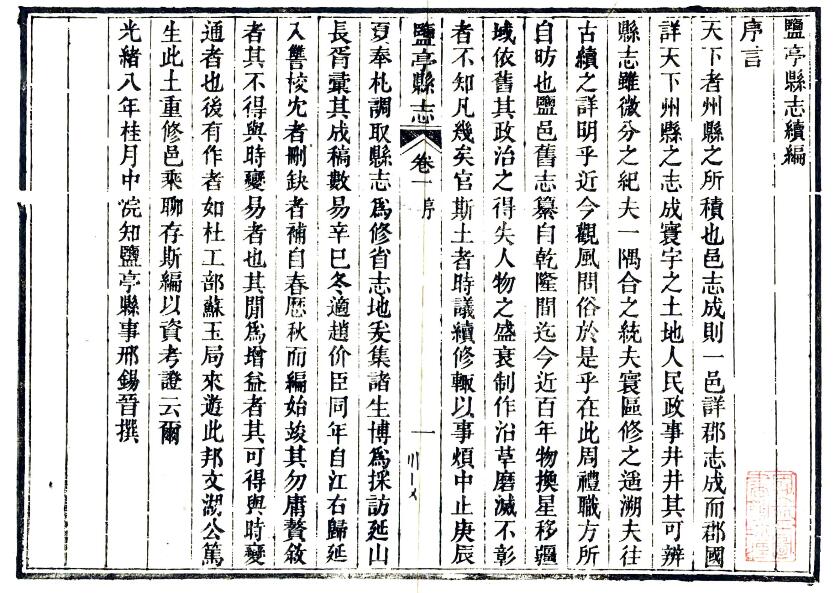 鹽亭縣志續編
序言
天下者州縣之所積也邑志成則一邑詳郡志成而郡國
詳天下州縣之志成寰宇之土地人民政事井井其可辨
縣志雖微分之紀夫一隅合之統夫寰區修之遥溯夫往
古續之詳明乎近今觀風問俗於是乎在此周禮職方所
自昉也鹽邑舊志纂自乾隆間迄今近百年物換星移疆
域依舊其政治之得失人物之盛衰制作沿革磨滅不彰
者不知凡幾矣官斯土者時議續修輒以事煩中止庚辰
鹽亭縣志
卷一
序
一
夏奉札調取縣志爲修省志地爰集諸生博爲採訪延山
長胥彚其成稿數易辛巳冬適趙价臣同年自江右歸延
入讐校冘者刪缺者補自春歷秋而編始竣其勿庸贅敘
者其不得與時變易者也其閒爲增益者其可得與時變
通者也後有作者如杜工部蘇玉局來遊此邦文湖公篤
生此土重修邑乘聊存斯編以資考證云爾
光緒八年桂月中浣知鹽亭縣事邢錫晉撰